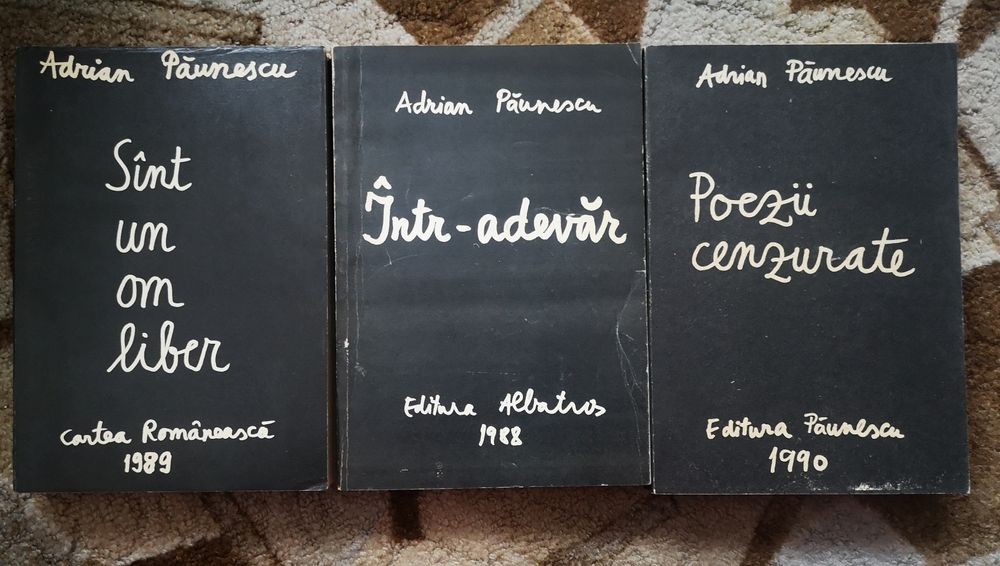 Adrian Păunescu
Sînt
un
om
liber
Cartea Românească
1989
Adrian Păunescu
Într-adevăr
Editura Albatros
1988
Adrian Păunescu
Poezii
cenzurate
Editura Păunescu
1990